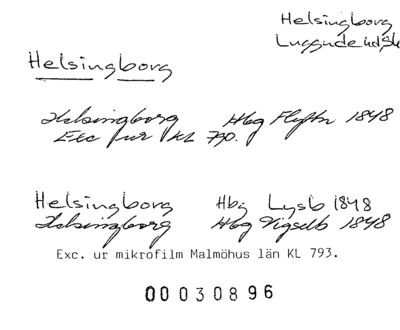 Helsingborg
Luggude hd, Sk
Helsingborg
Helsingborg Hbg Flyttn 1848
Exc ur KL 790.
Helsingborg Hbg Lysb 1848
Helsingborg Hbg Vigselb 1848
Exc. ur mikrofilm Malmöhus län KL 793.
00030896